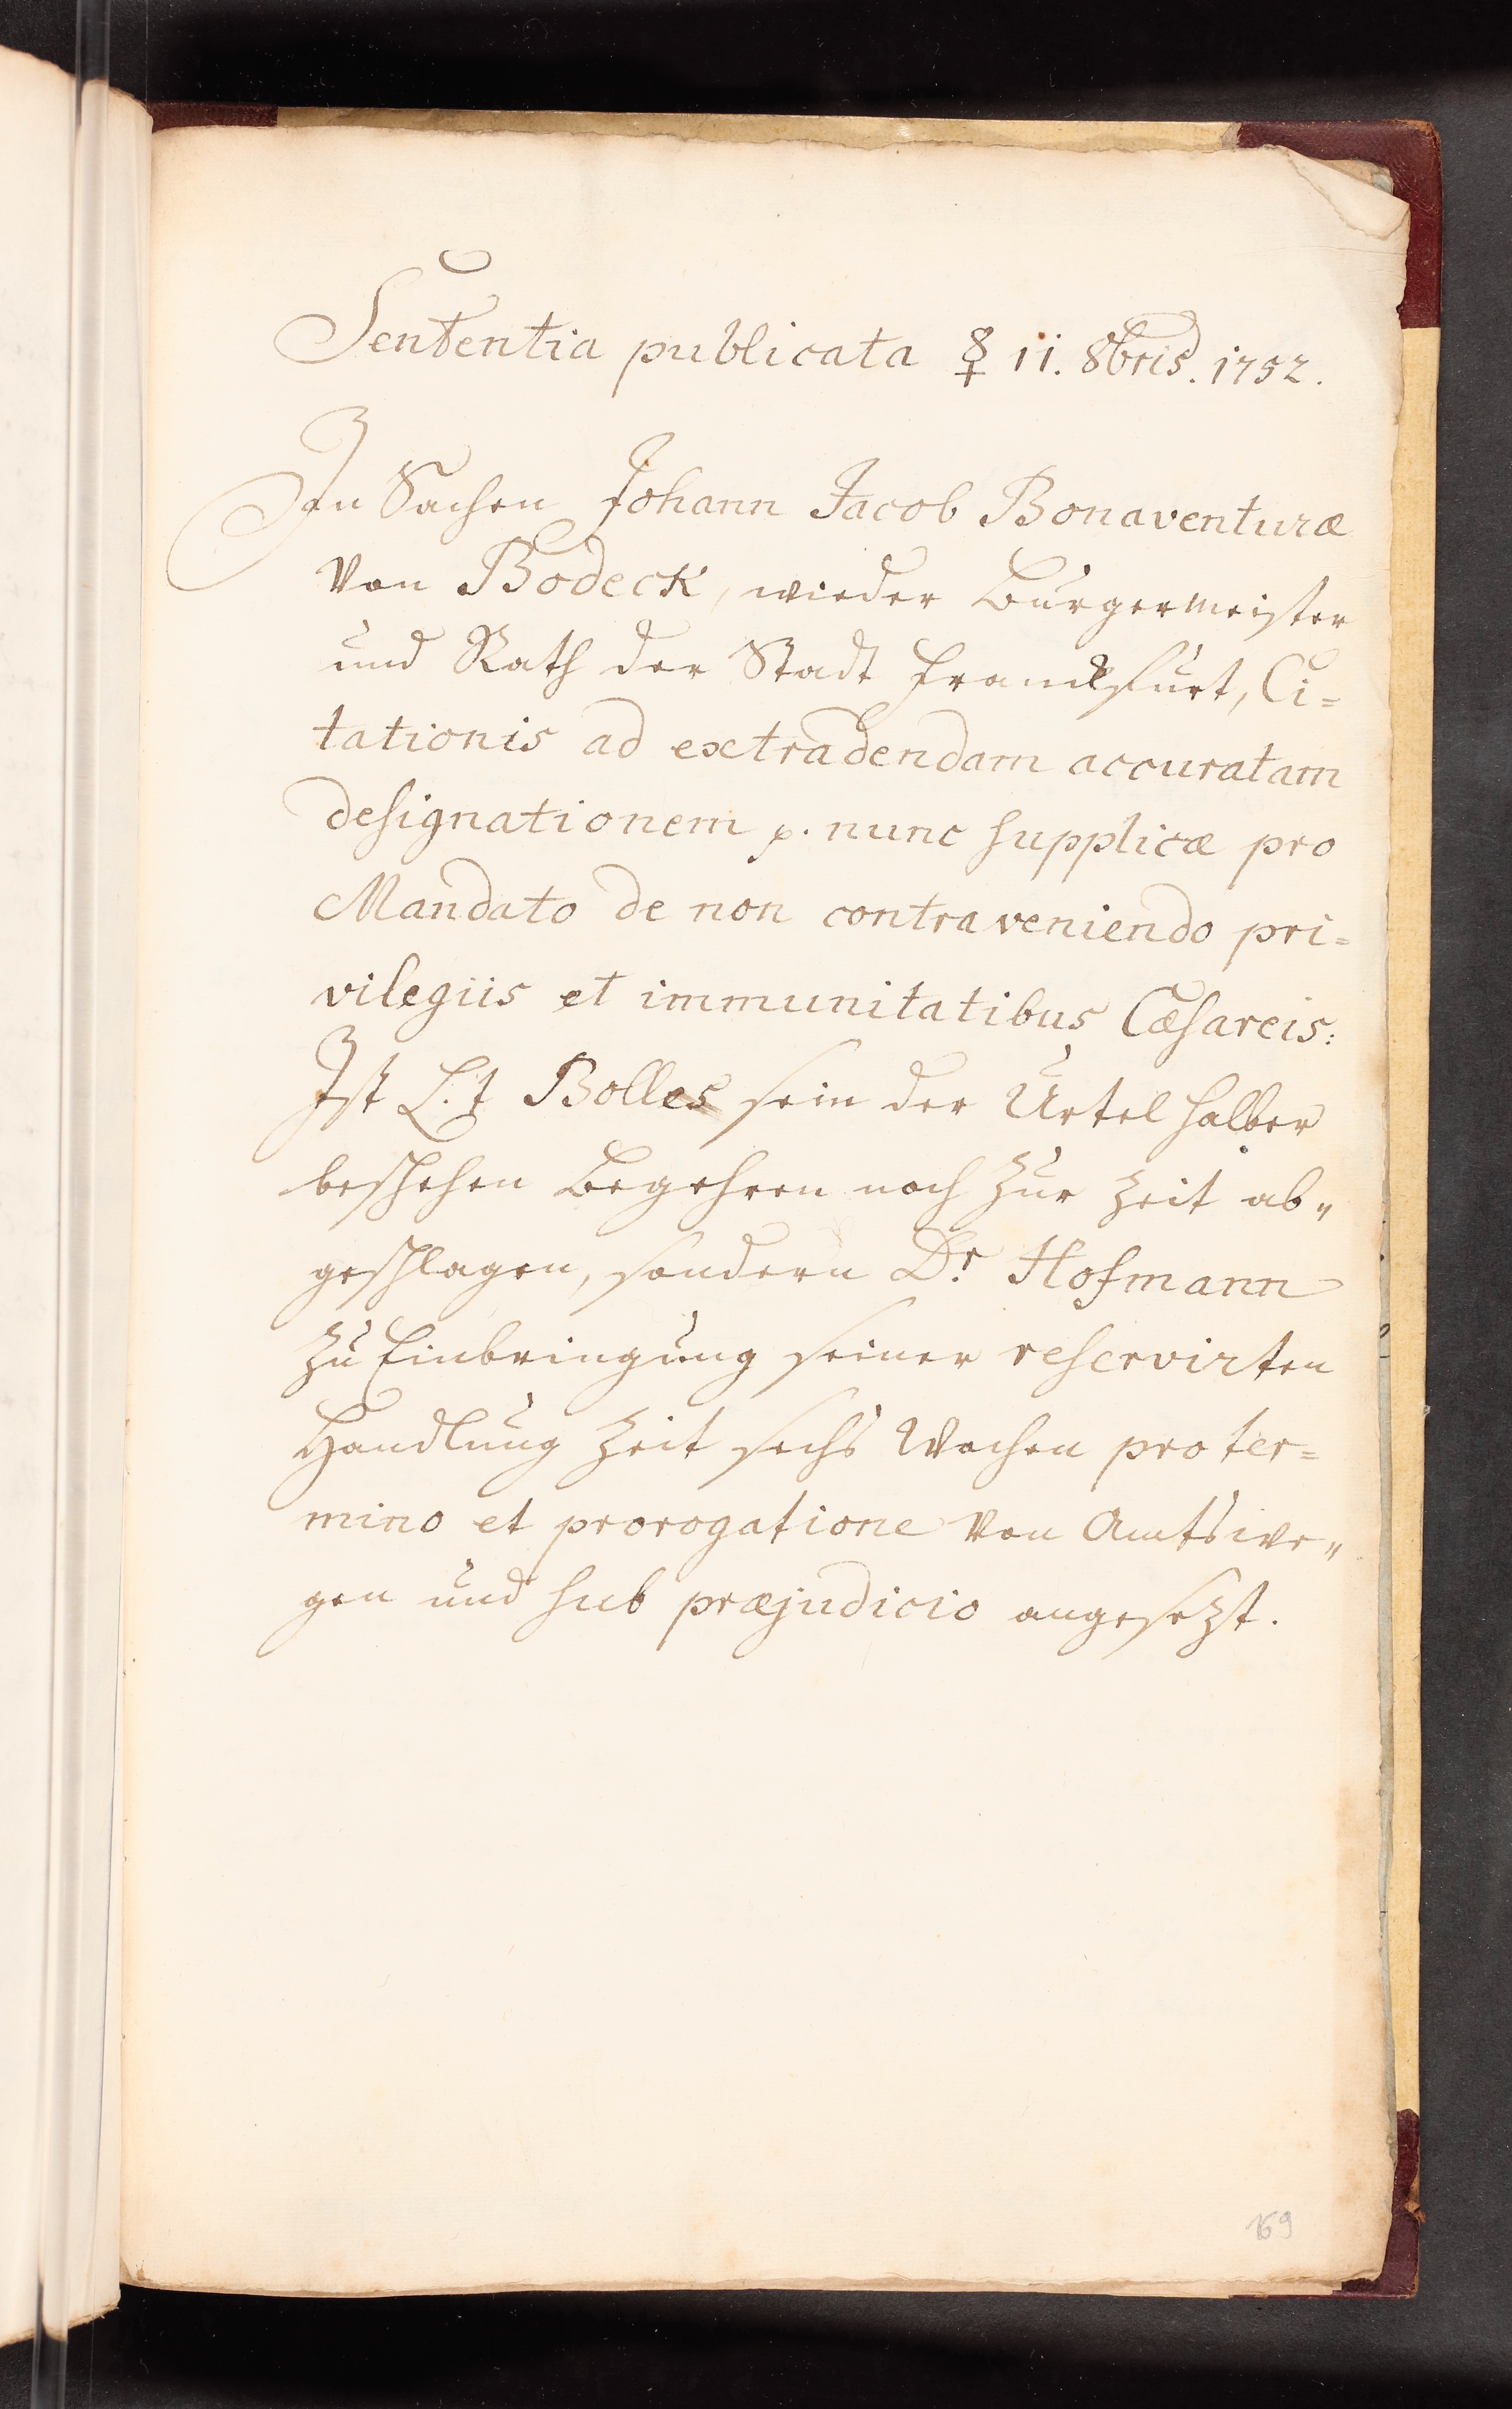 Sententia publicata ☿ 11. 8bris. 1752.
In Sachen Johann Jacob Bonaventuræ
von Bodeck, wieder Burgermeister
und Rath der Stadt Franckfurt, Ci=
tationis ad extradendam accuratam
designationem p. nunc supplicæ pro
Mandato de non contraveniendo pri=
vilegiis et immunitatibus Cæsareis:
Ist L.t Bolles sein der Urtel halber
beschehen Begehren noch zur Zeit ab„
geschlagen, sondern Dr. Hofmann
zu Einbringung seiner reservirten
Handlung Zeit sechs Wochen pro ter=
mino et prorogatione von Amtswe„
gen und sub præjudicio angesezt.
169